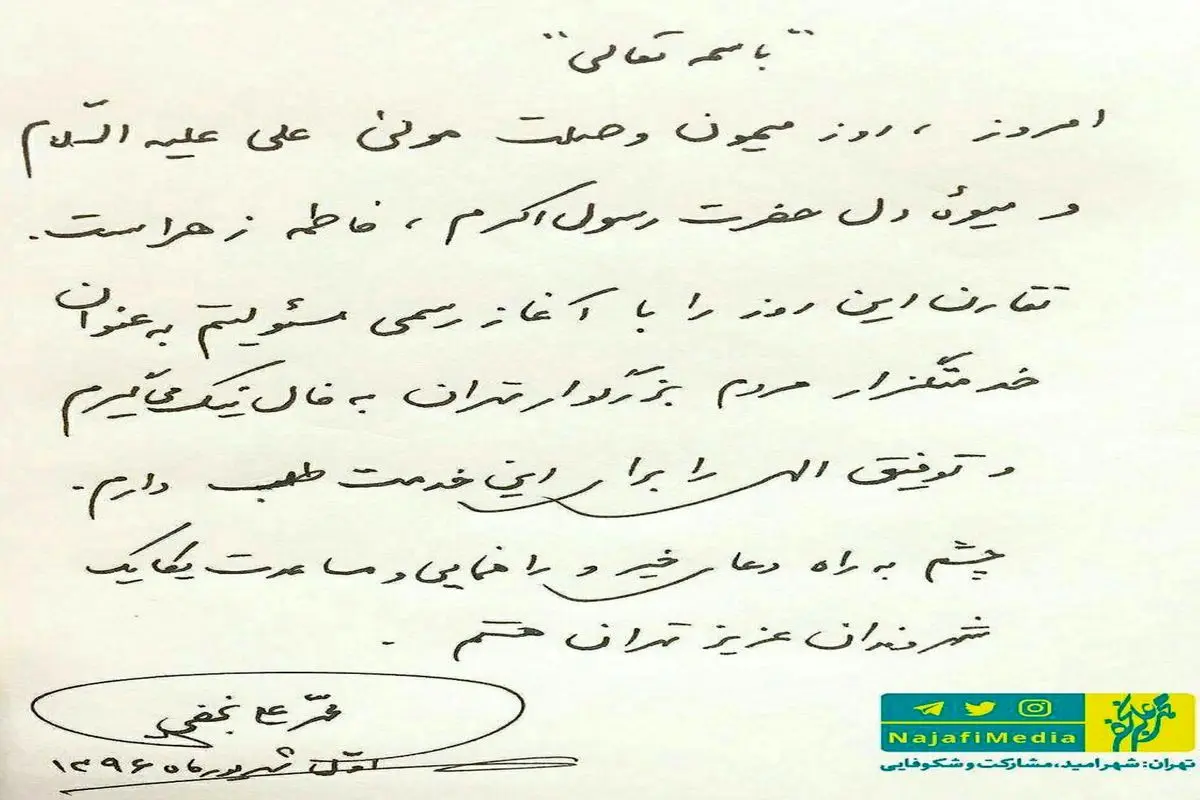 "باسمه تعالی"
امروز ، روز میمون وصلت مولیٰ علی علیه السّلام
و میوۀ دل حضرت رسول اکرم ، فاطمه زهراست .
تقارن این روز را با آغاز رسمی مسئولیتم به عنوان
خدمتگزار مردم بزرگوار تهران به فال نیک می‌گیرم
و توفیق الهی را برای این خدمت طلب دارم .
چشم به راه دعای خیر و راهنمایی و مساعدت یکایک
شهروندان عزیز تهران هستم .
محمّد علی نجفی
اوّل شهریور ماه ۱۳۹۶
NajafiMedia
تهران: شهر امید، مشارکت و شکوفایی